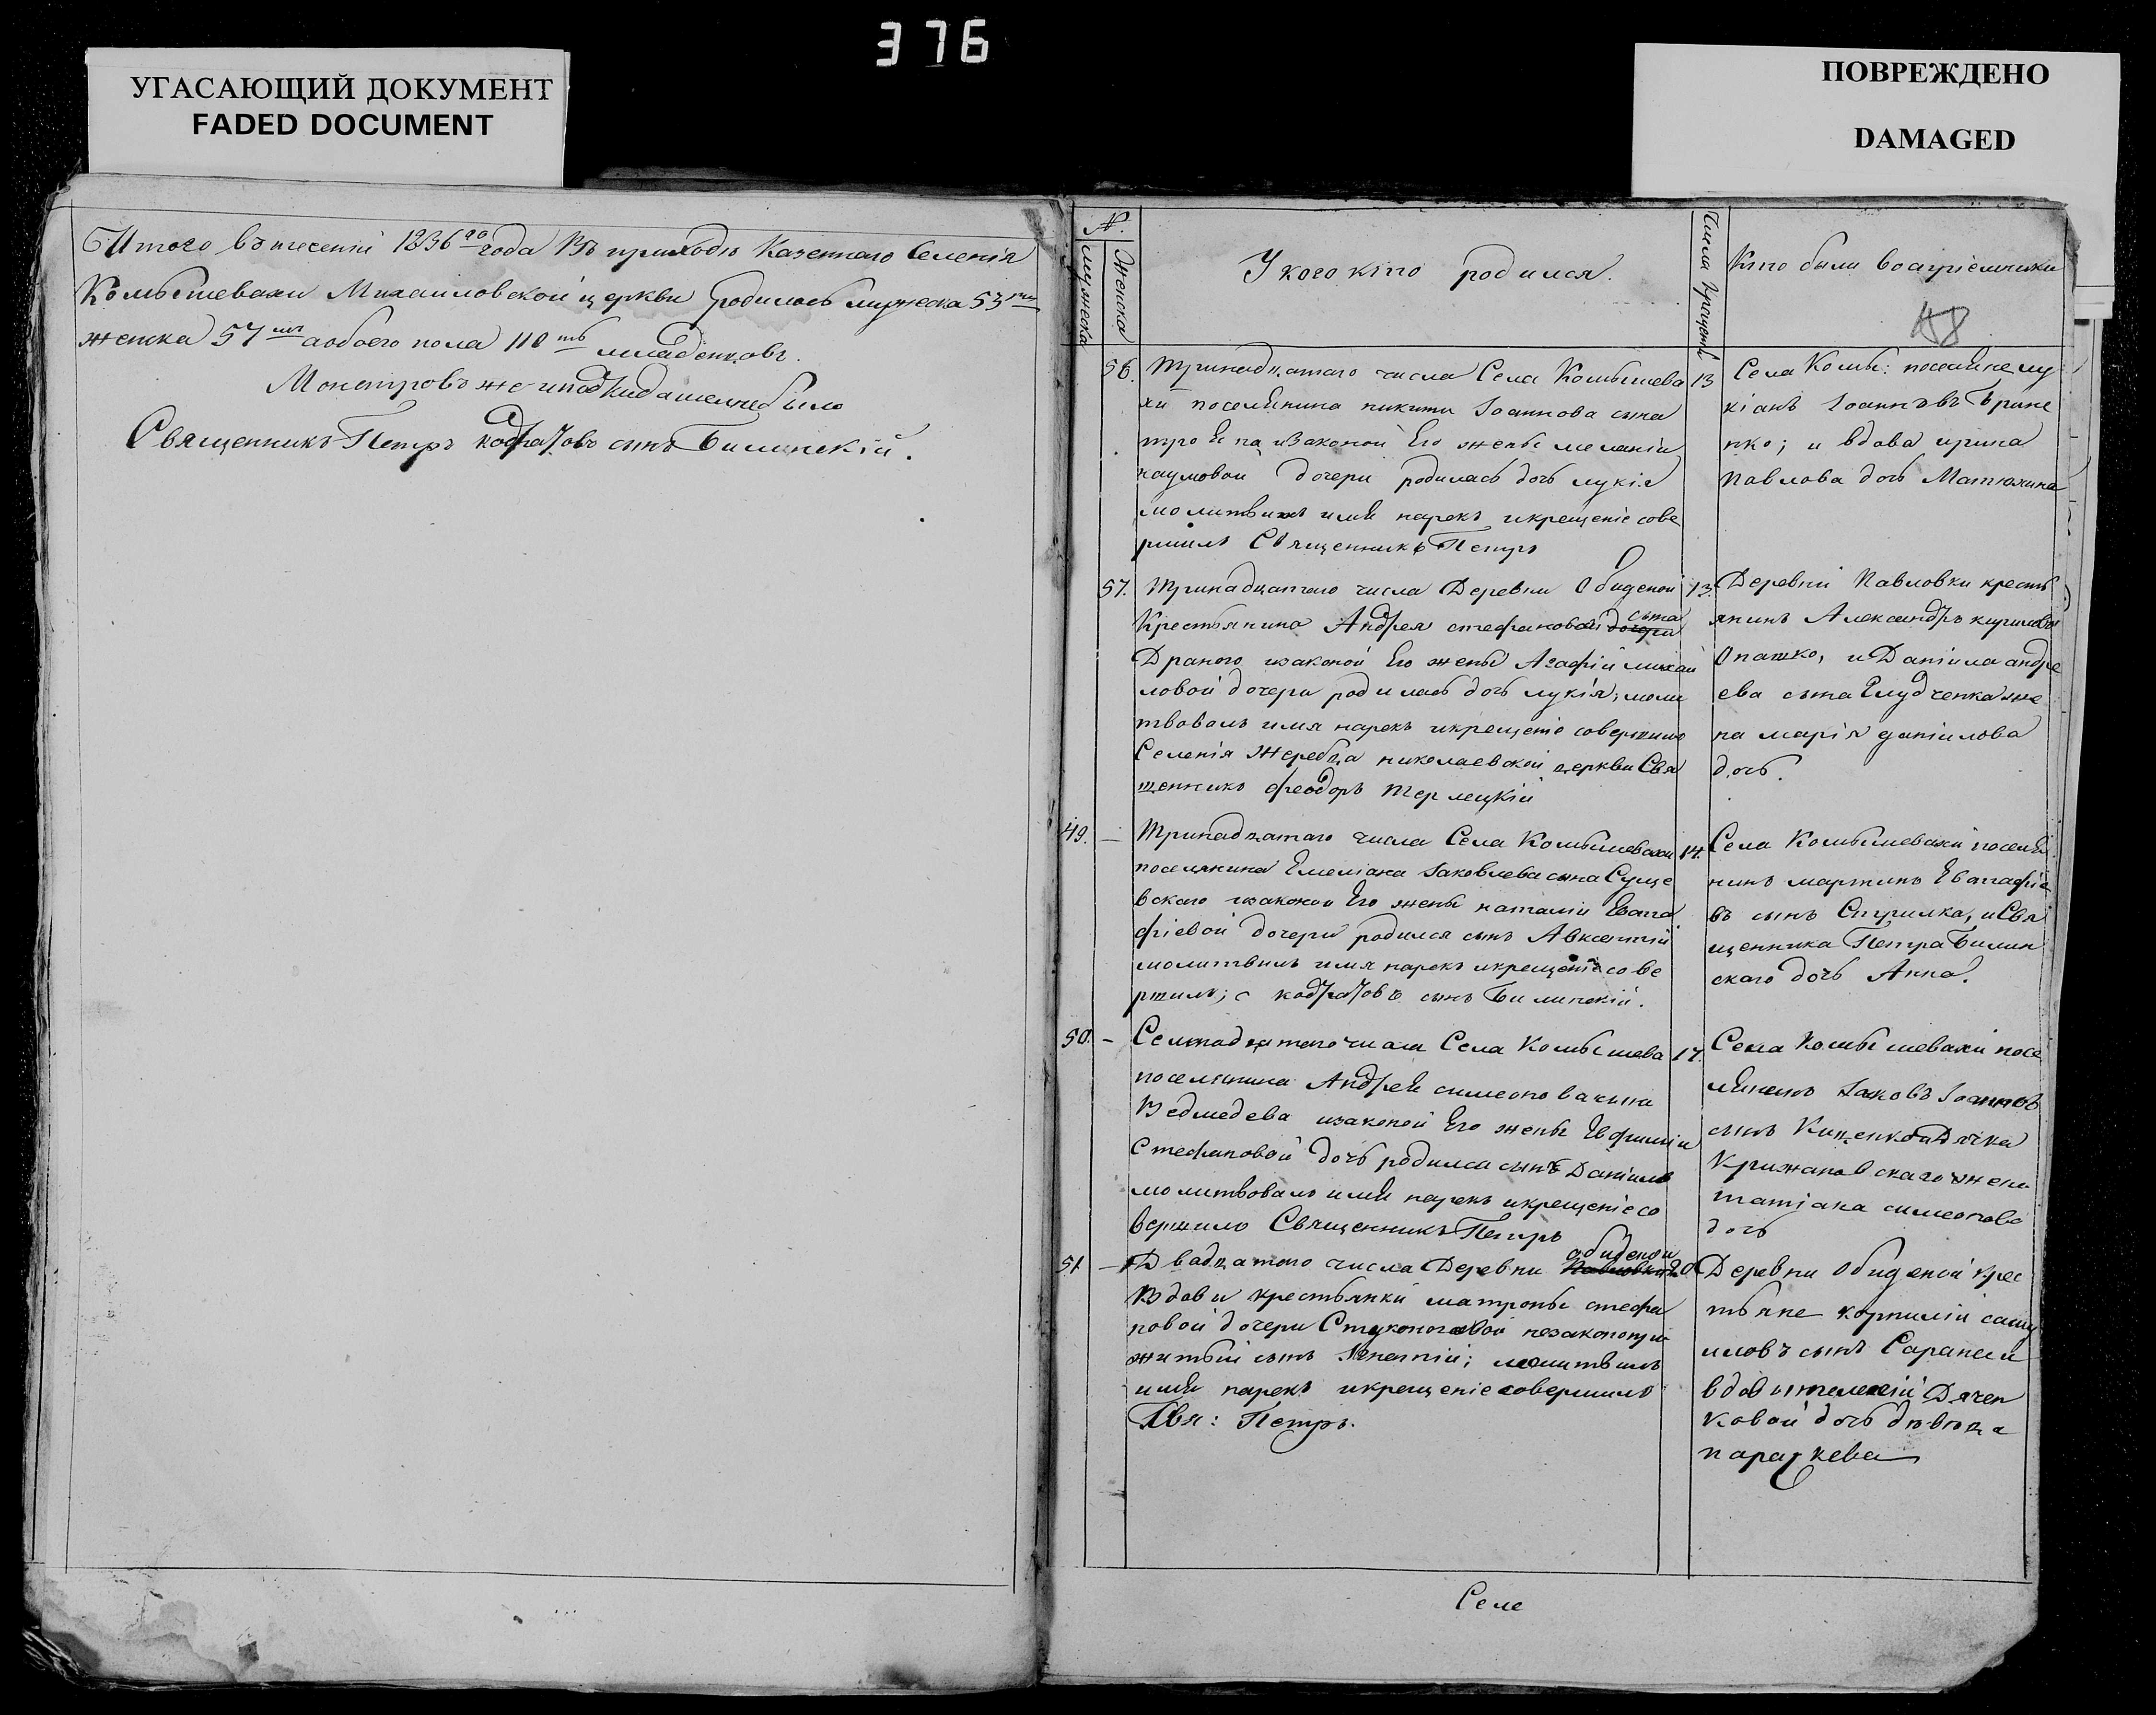 376
УГАСАЮЩИЙ ДОКУМЕНТ
FADED DOCUMENT
ПОВРЕЖДЕНО
DAMAGED
Итого въ течении 1836го года Въ приходѣ Казеннаго Селенія
Комышевахи Михаиловской церкви родилось мужеска 53
женска 57 а обоего пола 110ть младенцовъ.
Монстровъ же и подкидашей не было
Священникъ Петръ кодратовъ сынъ Билинскій.
№.
мужеска
женска
У кого кто родился.
Числа крещенія
Кто были воспріемники
48
56.
Тринадцатаго числа Села Комышева
хи поселянина никиты Іоаннова сына
изаконой Его жены меланіи
наумовой дочери родилась дочь лукія
молитвилъ имя нарекъ икрещеніе сове
ршилъ Священникъ Петръ
13
Села Комы: поселяне лу
кіанъ Іоанновъ Грине
нко; и вдова ирина
Павлова дочь Матюхина
57.
Тринадцатаго числа Деревни Обиденой
Крестьянина Андрея стефановой дочери сына
Драного изаконой Его жены Агафіи михай
ловой дочери родилась дочь лукія; моли
твовалъ имя нарекъ икрещеніе совершилъ
Селенія Жеребца николаевской церкви Свя
щенникъ феодоръ Терлецкій
13.
Деревни Павловки кресть
янинъ Александръ кириловъ
Опашко, и Даніила андре
ева сына Глудченка же
на марія даніилова
дочь.
49. —
Тринадцатаго числа Села Комышевахи
поселянина Емеліана Іаковлева сына Суще
вского изаконой Его жены наталіи Евста
фіевой дочери родился сынъ Авксентій
молитвилъ имя нарекъ икрещеніе сове
ршилъ; с кодратовъ сынъ Билинскій.
14.
Села Комышевахи поселя
нинъ мартинъ Евстафіе
въ сынъ Стрилка, и Свя
щенника Петра Билин
скаго дочь Анна.
50. —
Семнадцатого числа Села Комышева
поселянина Андрея симеонова сына
Ведмедева изаконой Его жены Евфиміи
Стефановой дочь родился сынъ Даніилъ
молитвовалъ имя нарекъ икрещеніе со
вершилъ Священникъ Петръ
17.
Села Комышевахи посе
лянинъ Іаковъ Іоанновъ
сынъ и Дячка
Крижановскаго жена
татіана симеонова
дочь
51. —
Двадцатого числа Деревни Павловки обиденой
Вдовы крестьянки матроны стефа
новой дочери Стуконоговой незаконопри
житый сынъ Игнатій; молитвилъ
имя нарекъ икрещеніе совершилъ
Свя: Петръ.
20
Деревни Обиденой крес
тьяне корнилій саму
иловъ сынъ Саранси
вдовы Дячен
ковой дочь дѣвица
параскева
Селе